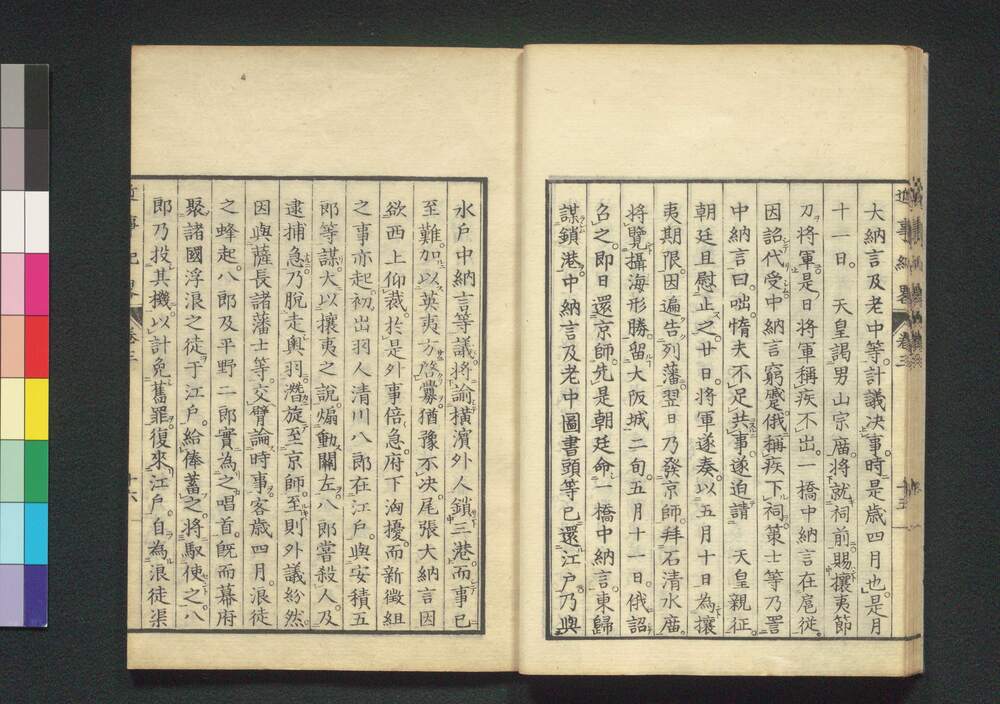 大納言及老中等計議決事時是歲四月也是月
十一日。　天皇謁男山宗廟將就祠前賜攘夷節
刀將軍是日將軍稱疾不出一橋中納言在扈從。
因詔代受中納言窮蹙俄稱疾下祠策士等乃詈
中納言曰咄惰夫不足共事遂迫請　天皇親征。
朝廷且慰止之廿日將軍遂奏以五月十日為攘
夷期限因遍告列藩翌日乃發京師拜石清水廟。
將覽攝海形勝留大阪城二旬五月十一日俄詔
召之即日還京師先是朝廷命一橋中納言東歸
謀鎖港中納言及老中圖書頭等已還江戶乃與
近事紀畧
卷三
水戶中納言等議將諭橫濱外人鎖三港而事已
至難加以英夷方啓釁猶豫不決尾張大納言因
欲西上仰裁於是外事倍急府下洶擾而新徵組
之事亦起初出羽人清川八郎在江戶與安積五
郎等謀大以攘夷之說煽動關左八郎嘗殺人及
逮捕急乃脫走奧羽潛旋至京師至則外議紛然。
因與薩長諸藩士等交臂論時事客歲四月浪徒
之蜂起八郎及平野二郎實為之唱首既而幕府
聚諸國浮浪之徒于江戶給俸蓄之將馭使之八
郎乃投其機以計免舊罪復來江戶自為浪徒渠
近事紀畧
卷三
十六